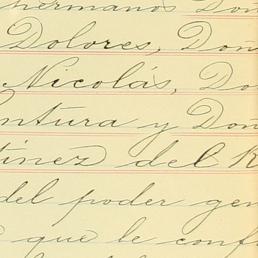 hermanos Don
Dolores, Don
Nicolás, Do
ntura y Don
tinez del R
del poder gen
que le confi